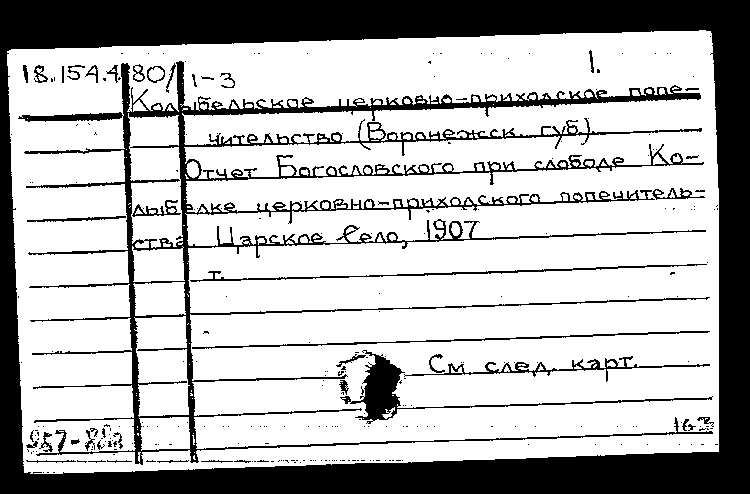 18.154.4.80/1-3 1.
Колыбельское церковно-приходское попе-
чительство (Воронежск. губ.).
Отчет Богословского при слободе Ко-
лыбелке церковно-приходского попечитель-
ства. Царское Село, 1907
т.
См. след. карт.
163